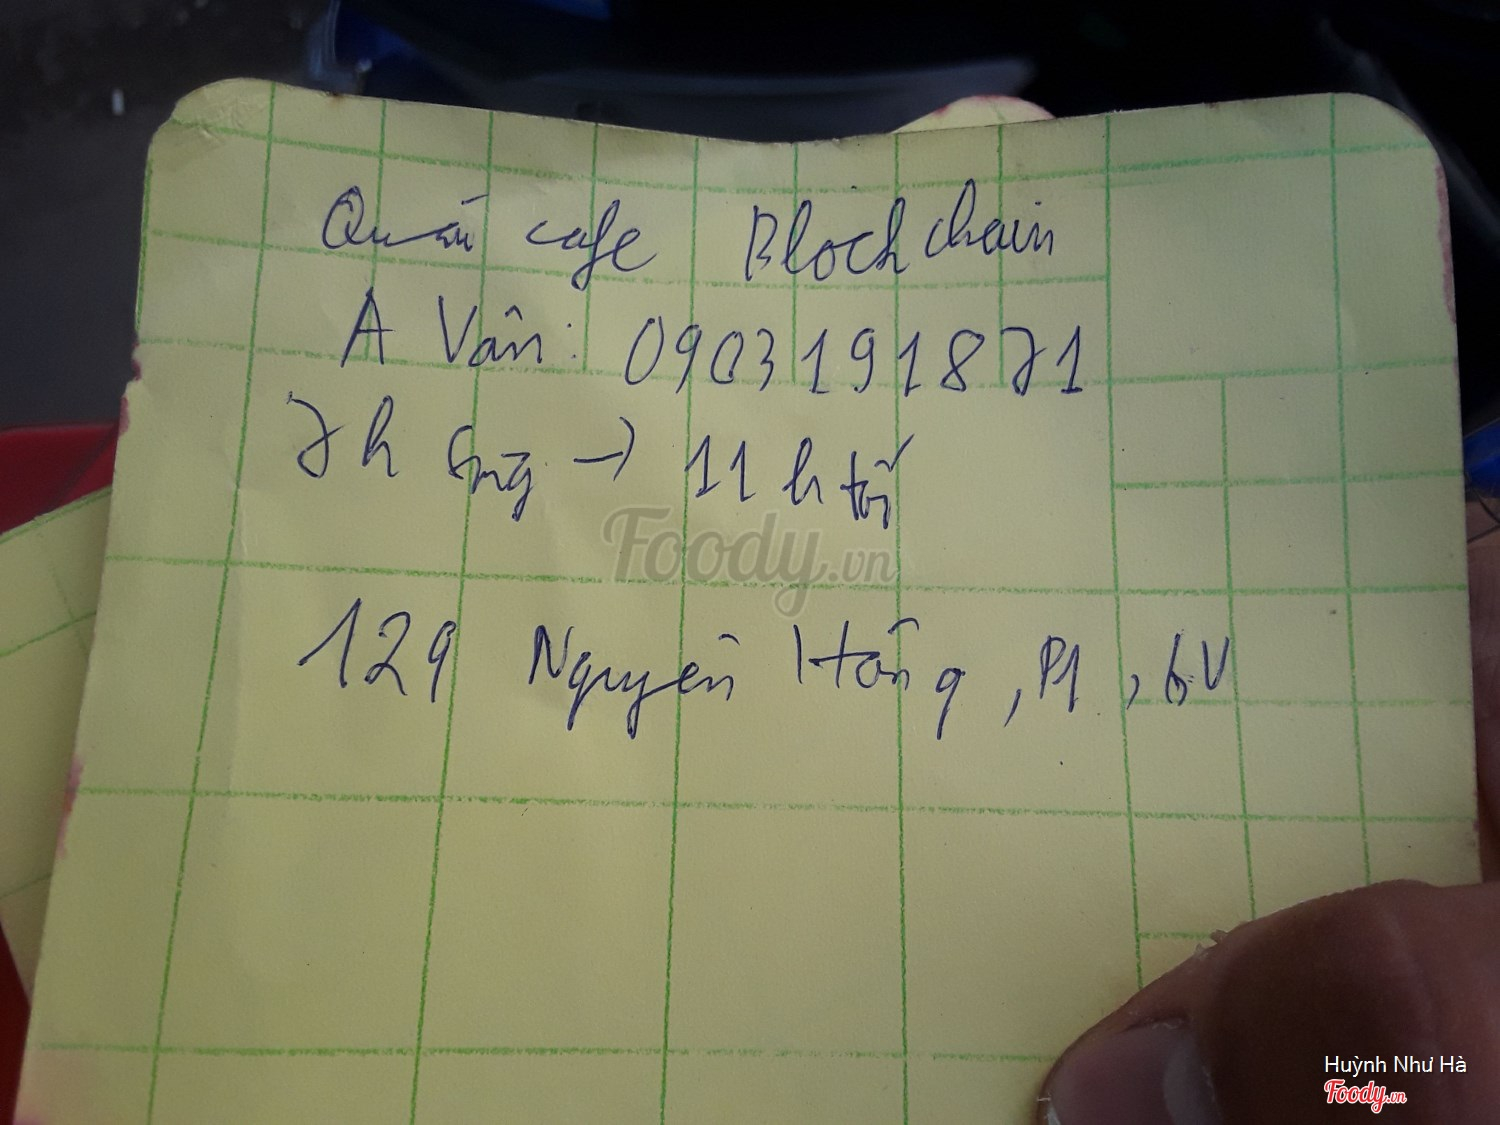 Quán cafe Blockchain
A Vân: 0903191871
7h sng → 11h tối
Foody.vn
129 Nguyên Hông, P1, GV
Huỳnh Như Hà
Foody.vn